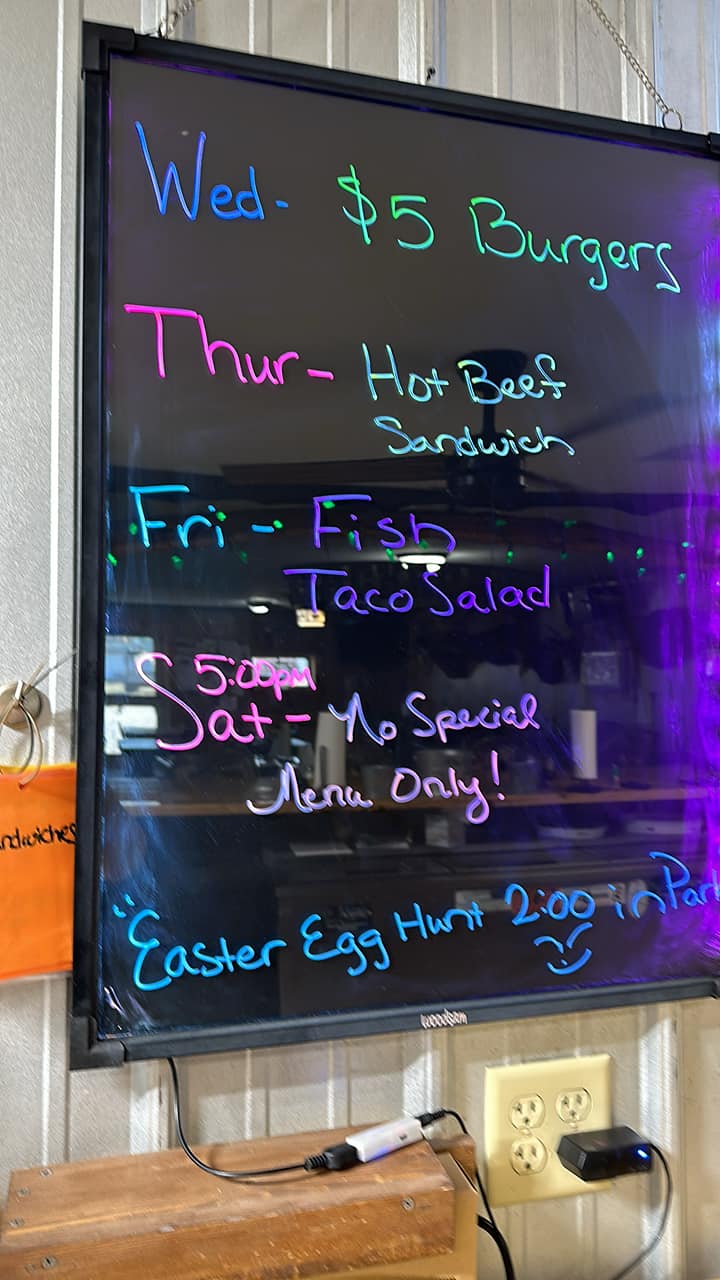 Wed- $5 Burgers
Thur- Hot Beef
Sandwich
Fri - Fish
Taco Salad
5:00pm
Sat- No Special
Menu Only!
"Easter Egg Hunt 2:00 in Par
woodsam
ndwiches